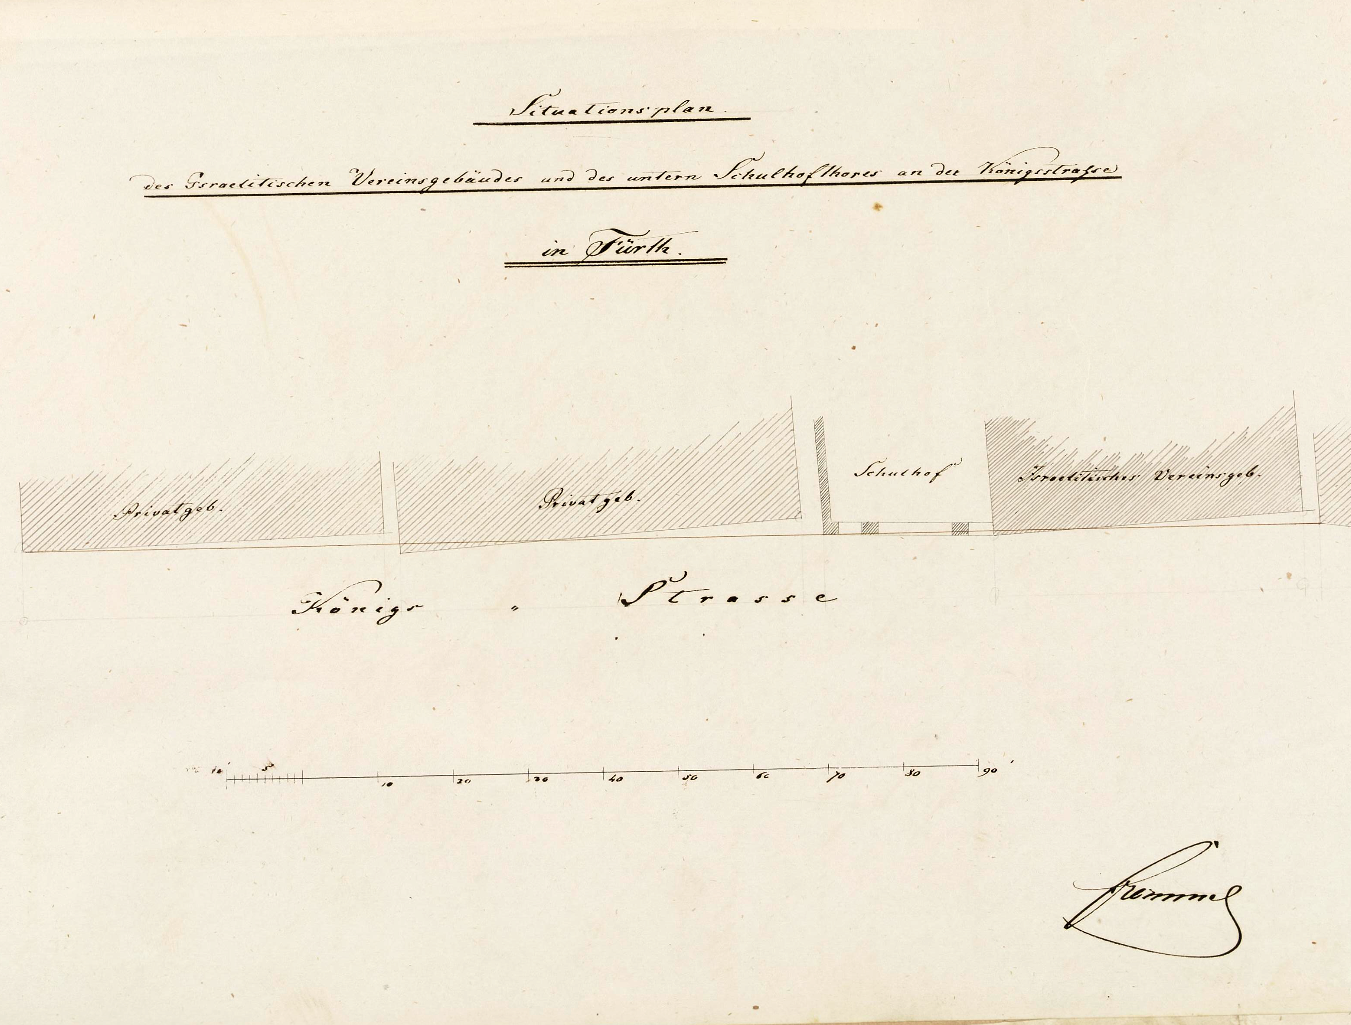 Situationsplan
des Israelitischen Vereinsgebäudes und des untern Schulhofthores an der Königsstraße
in Fürth.
Schulhof
Israelitisches Vereinsgeb.
Privatgeb.
Privatgeb.
Königs " Strasse
10' 5 10 20 30 40 50 60 70 80 90'